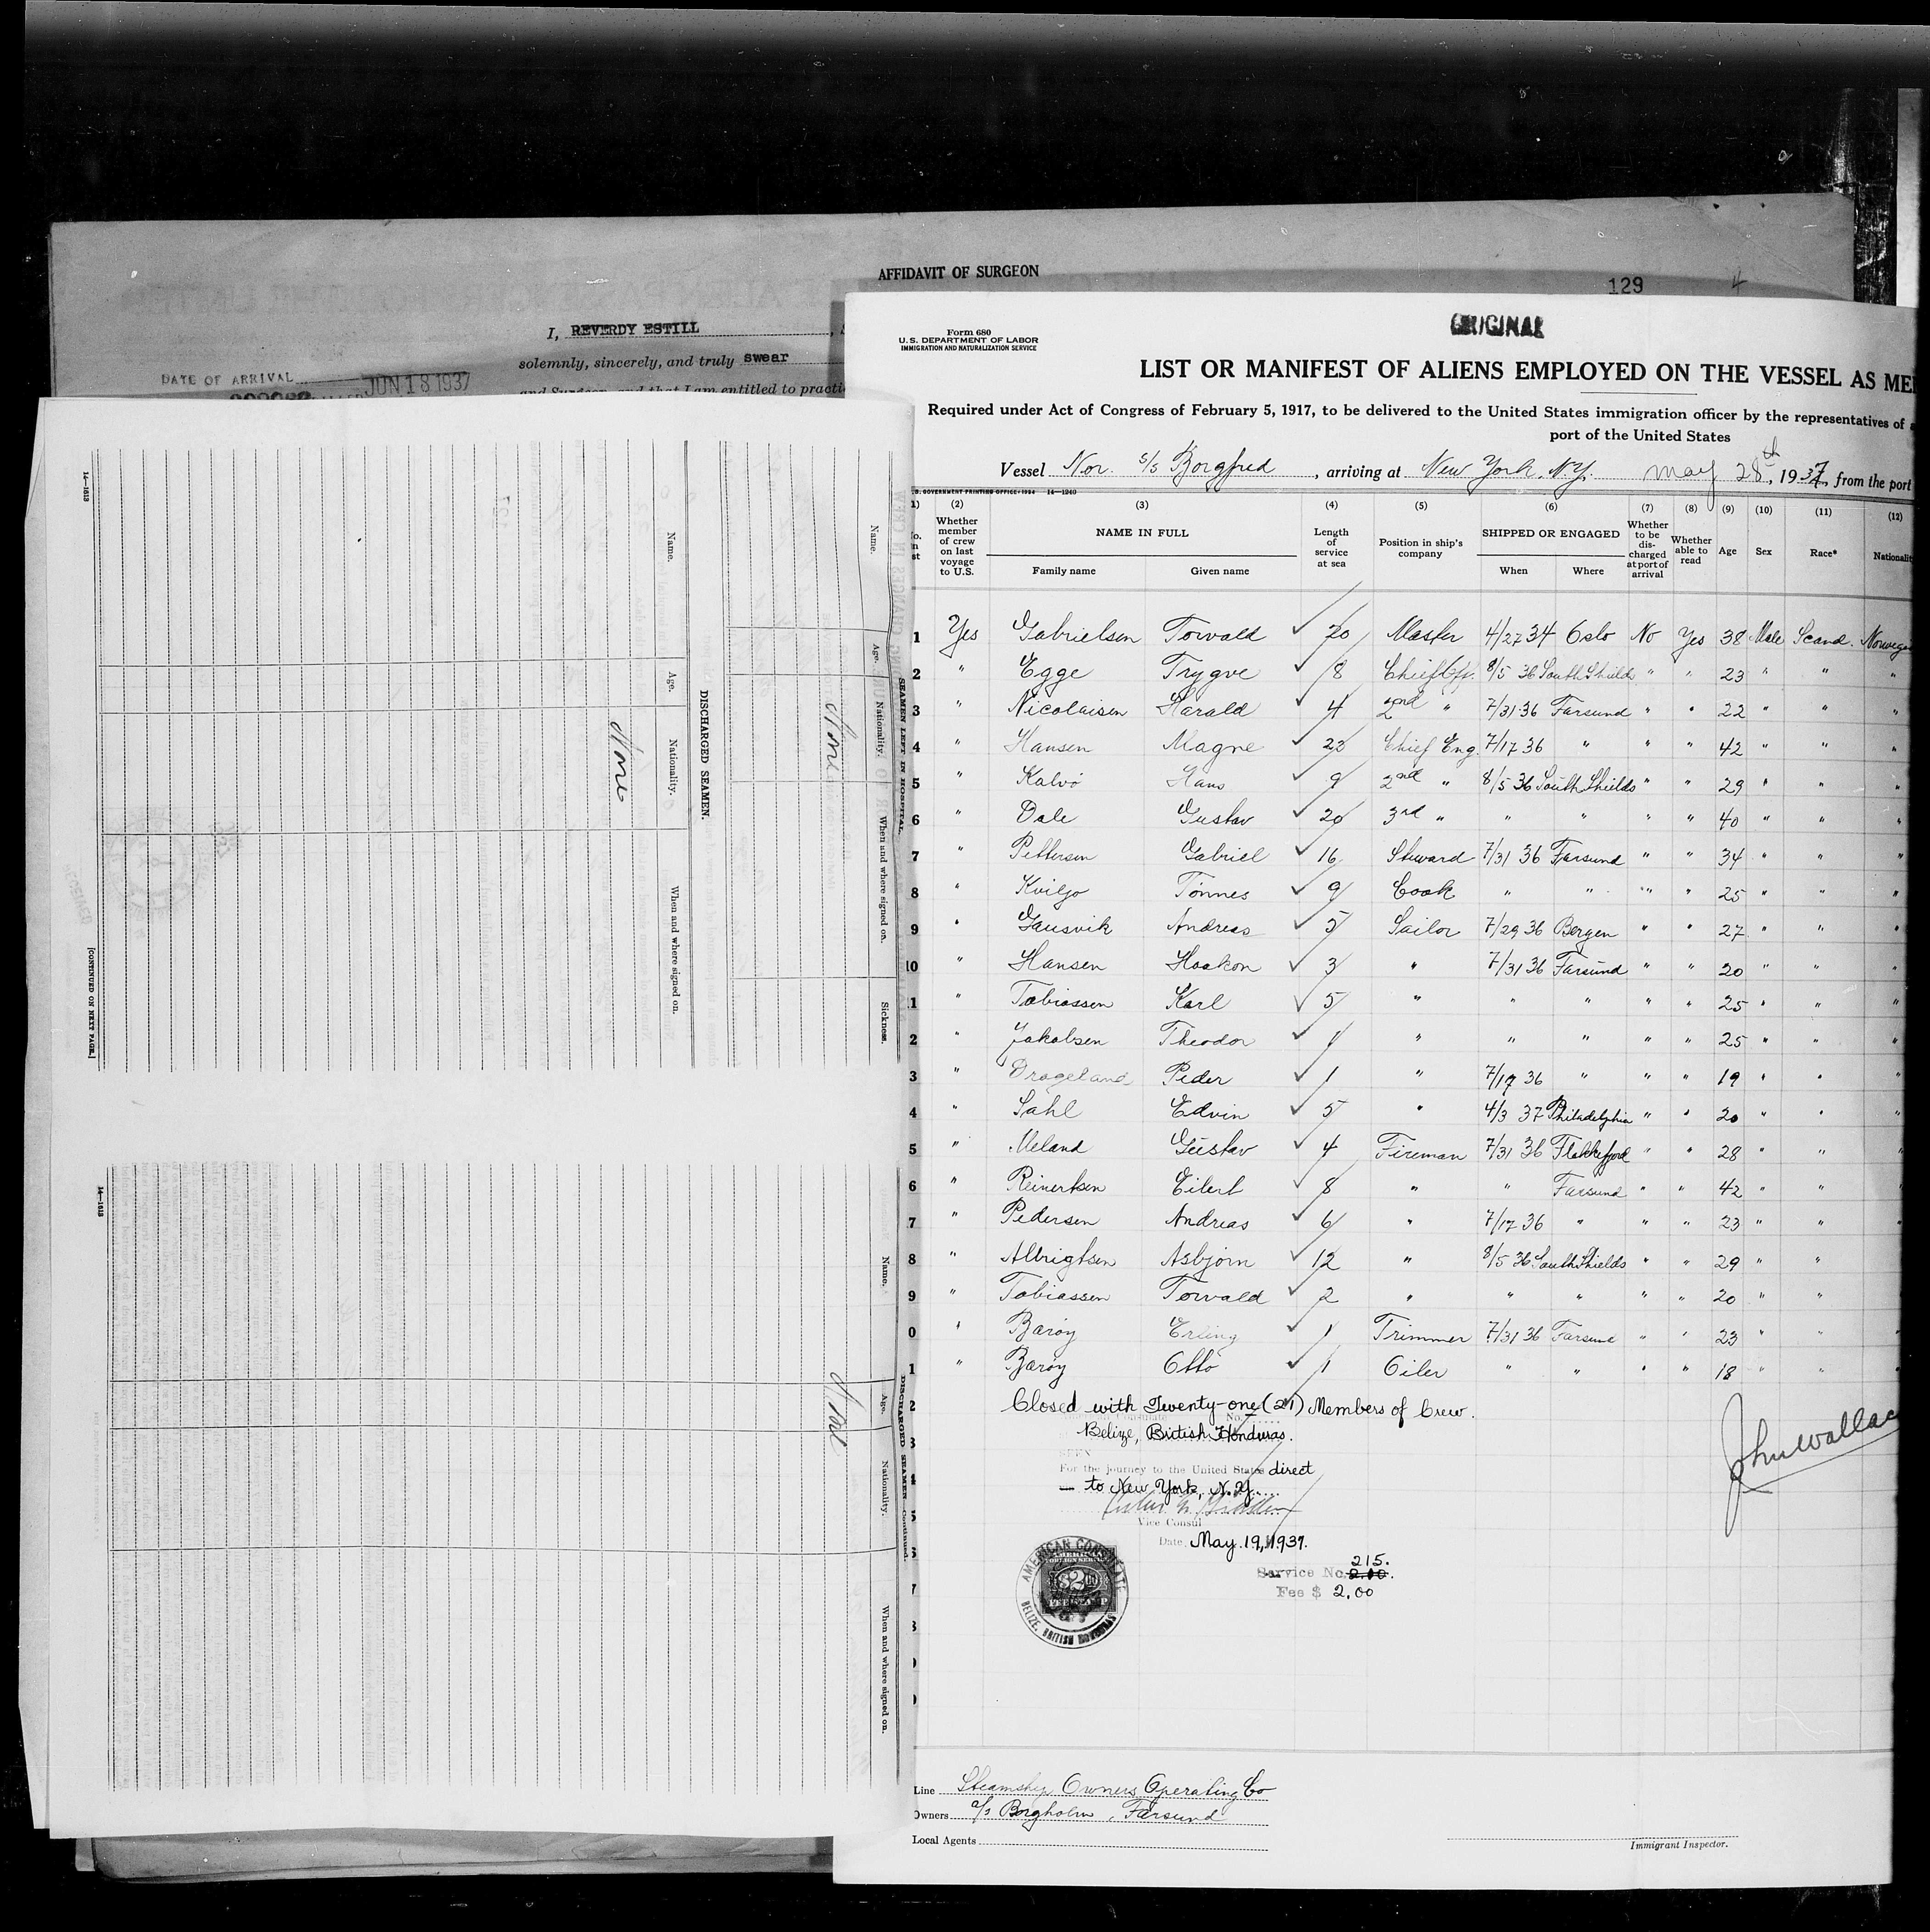 AFFIDAVIT OF SURGEON
129
4
I, REVERDY ESTILL
solemnly, sincerely, and truly swear
DATE OF ARRIVAL JUN 18 1937
and Surgeon, and that I am entitled to practi
Form 680
U. S. DEPARTMENT OF LABOR
IMMIGRATION AND NATURALIZATION SERVICE
ORIGINAL
LIST OR MANIFEST OF ALIENS EMPLOYED ON THE VESSEL AS ME
Required under Act of Congress of February 5, 1917, to be delivered to the United States immigration officer by the representatives of
port of the United States
Vessel Nor. s/s Borgfred, arriving at New York, N.Y. May 28th, 1937, from the port
U.S. GOVERNMENT PRINTING OFFICE: 1934 14—1240
(2) (3) (4) (5) (6) (7) (8) (9) (10) (11) (12)
Whether member of crew on last voyage to U.S.
NAME IN FULL
Family name Given name
Length of service at sea
Position in ship's company
SHIPPED OR ENGAGED
When Where
Whether to be discharged at port of arrival
Whether able to read
Age
Sex
Race*
Nationalit
1 Yes Gabrielsen Torvald ✓ 20 Master 4/27 34 Oslo No Yes 38 Male Scand. Norwegi
2 " Egge Trygve ✓ 8 Chief Off. 8/5 36 South Shields " " 23 " " "
3 " Nicolaisen Harald ✓ 4 2nd " 7/31 36 Farsund " " 22 " " "
4 " Hansen Magne ✓ 23 Chief Eng. 7/17 36 " " " 42 " " "
5 " Kalvó Hans ✓ 9 2nd " 8/5 36 South Shields " " 29 " " "
6 " Dale Gustav ✓ 20 3rd " " " " " 40 " " "
7 " Pettersen Gabriel ✓ 16 Steward 7/31 36 Farsund " " 34 " " "
8 " Kviljo Tonnes ✓ 9 Cook " " " " 25 " " "
9 " Gausvik Andreas ✓ 5 Sailor 7/29 36 Bergen " " 27 " " "
10 " Hansen Haakon ✓ 3 " 7/31 36 Farsund " " 20 " " "
1 " Tobiassen Karl ✓ 5 " " " " " 25 " " "
2 " Jakobsen Theodor ✓ 1 " " " " " 25 " " "
3 " Drageland Peder ✓ 1 " 7/17 36 " " " 19 " " "
4 " Sahl Edvin ✓ 5 " 4/3 37 Philadelphia " " 20 " " "
5 " Meland Gustav ✓ 4 Fireman 7/31 36 Flekkefjord " " 28 " " "
6 " Reinertsen Eilert ✓ 8 " " Farsund " " 42 " " "
7 " Pedersen Andreas ✓ 6 " 7/17 36 " " " 23 " " "
8 " Albrigtsen Asbjorn ✓ 12 " 8/5 36 South Shields " " 29 " " "
9 " Tobiassen Torvald ✓ 2 " " " " " 20 " " "
0 " Barøy Erling ✓ 1 Trimmer 7/31 36 Farsund " " 23 " " "
1 " Barøy Otto ✓ 1 Oiler " " " " 18 " " "
2 Closed with Twenty-one (21) Members of Crew.
Belize, British Honduras.
SEEN
For the journey to the United States direct
— to New York, N.Y.
Vice Consul
Date May 19, 1937.
215.
Service No. 2.00.
Fee $ 2.00
John Wallac
AMERICAN CONSULATE
BELIZE, BRITISH HONDURAS
AMERICAN
FOREIGN SERVICE
$2.00
FEE STAMP
Line Steamship Owners Operating Co
Owners a/s Borgholm, Farsund
Local Agents
Immigrant Inspector.
SEAMEN LEFT IN HOSPITAL.
Name. Age. Nationality. When and where signed on. Sickness.
None
DISCHARGED SEAMEN.
Name. Age. Nationality. When and where signed on.
None
14—1613
[CONTINUED ON NEXT PAGE.]
DISCHARGED SEAMEN—Continued.
Name. Age. Nationality. When and where signed on.
None
14—1613